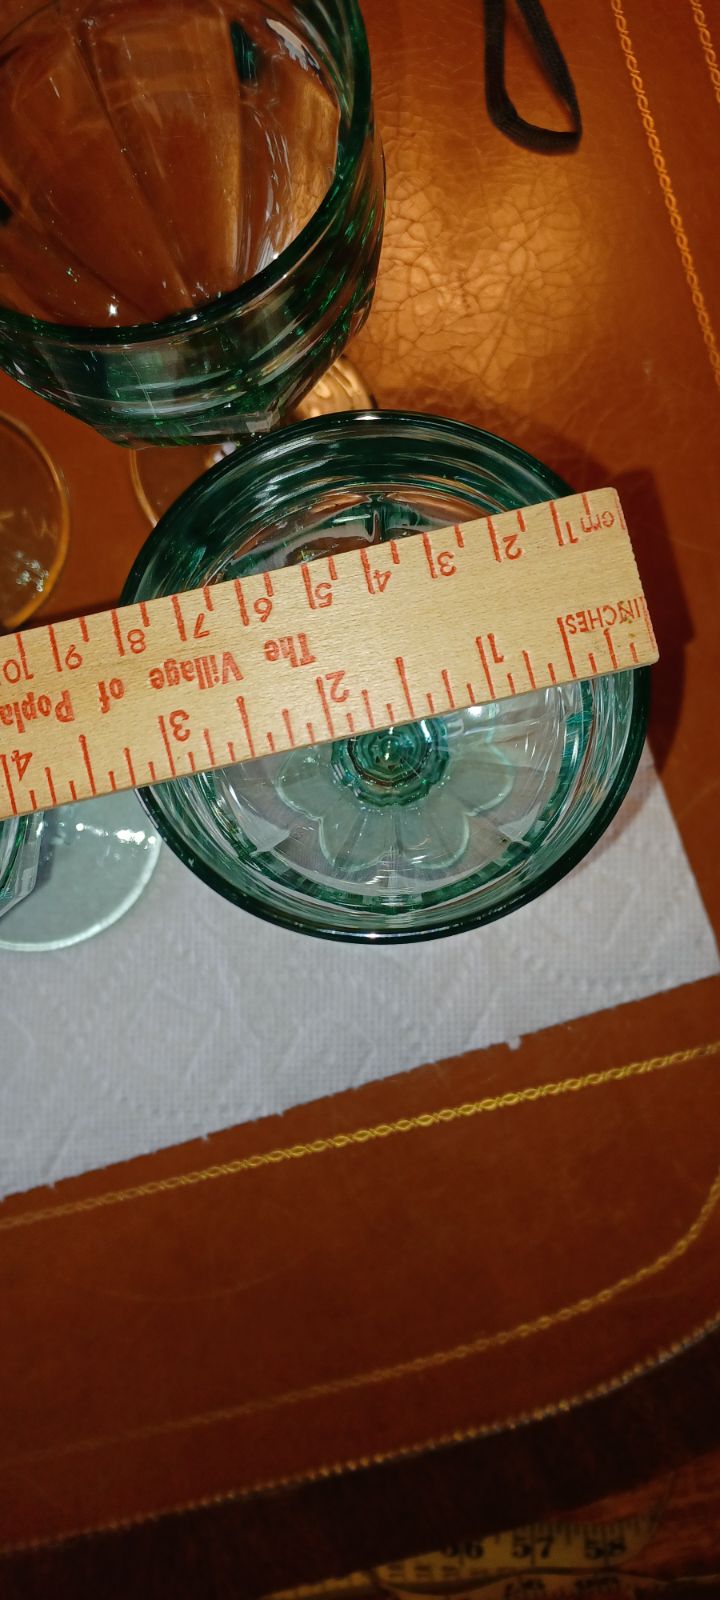 cm 1 2 3 4 5 6 7 8 9 10
The Village of Popla
INCHES 1 2 3 4
56 57 58